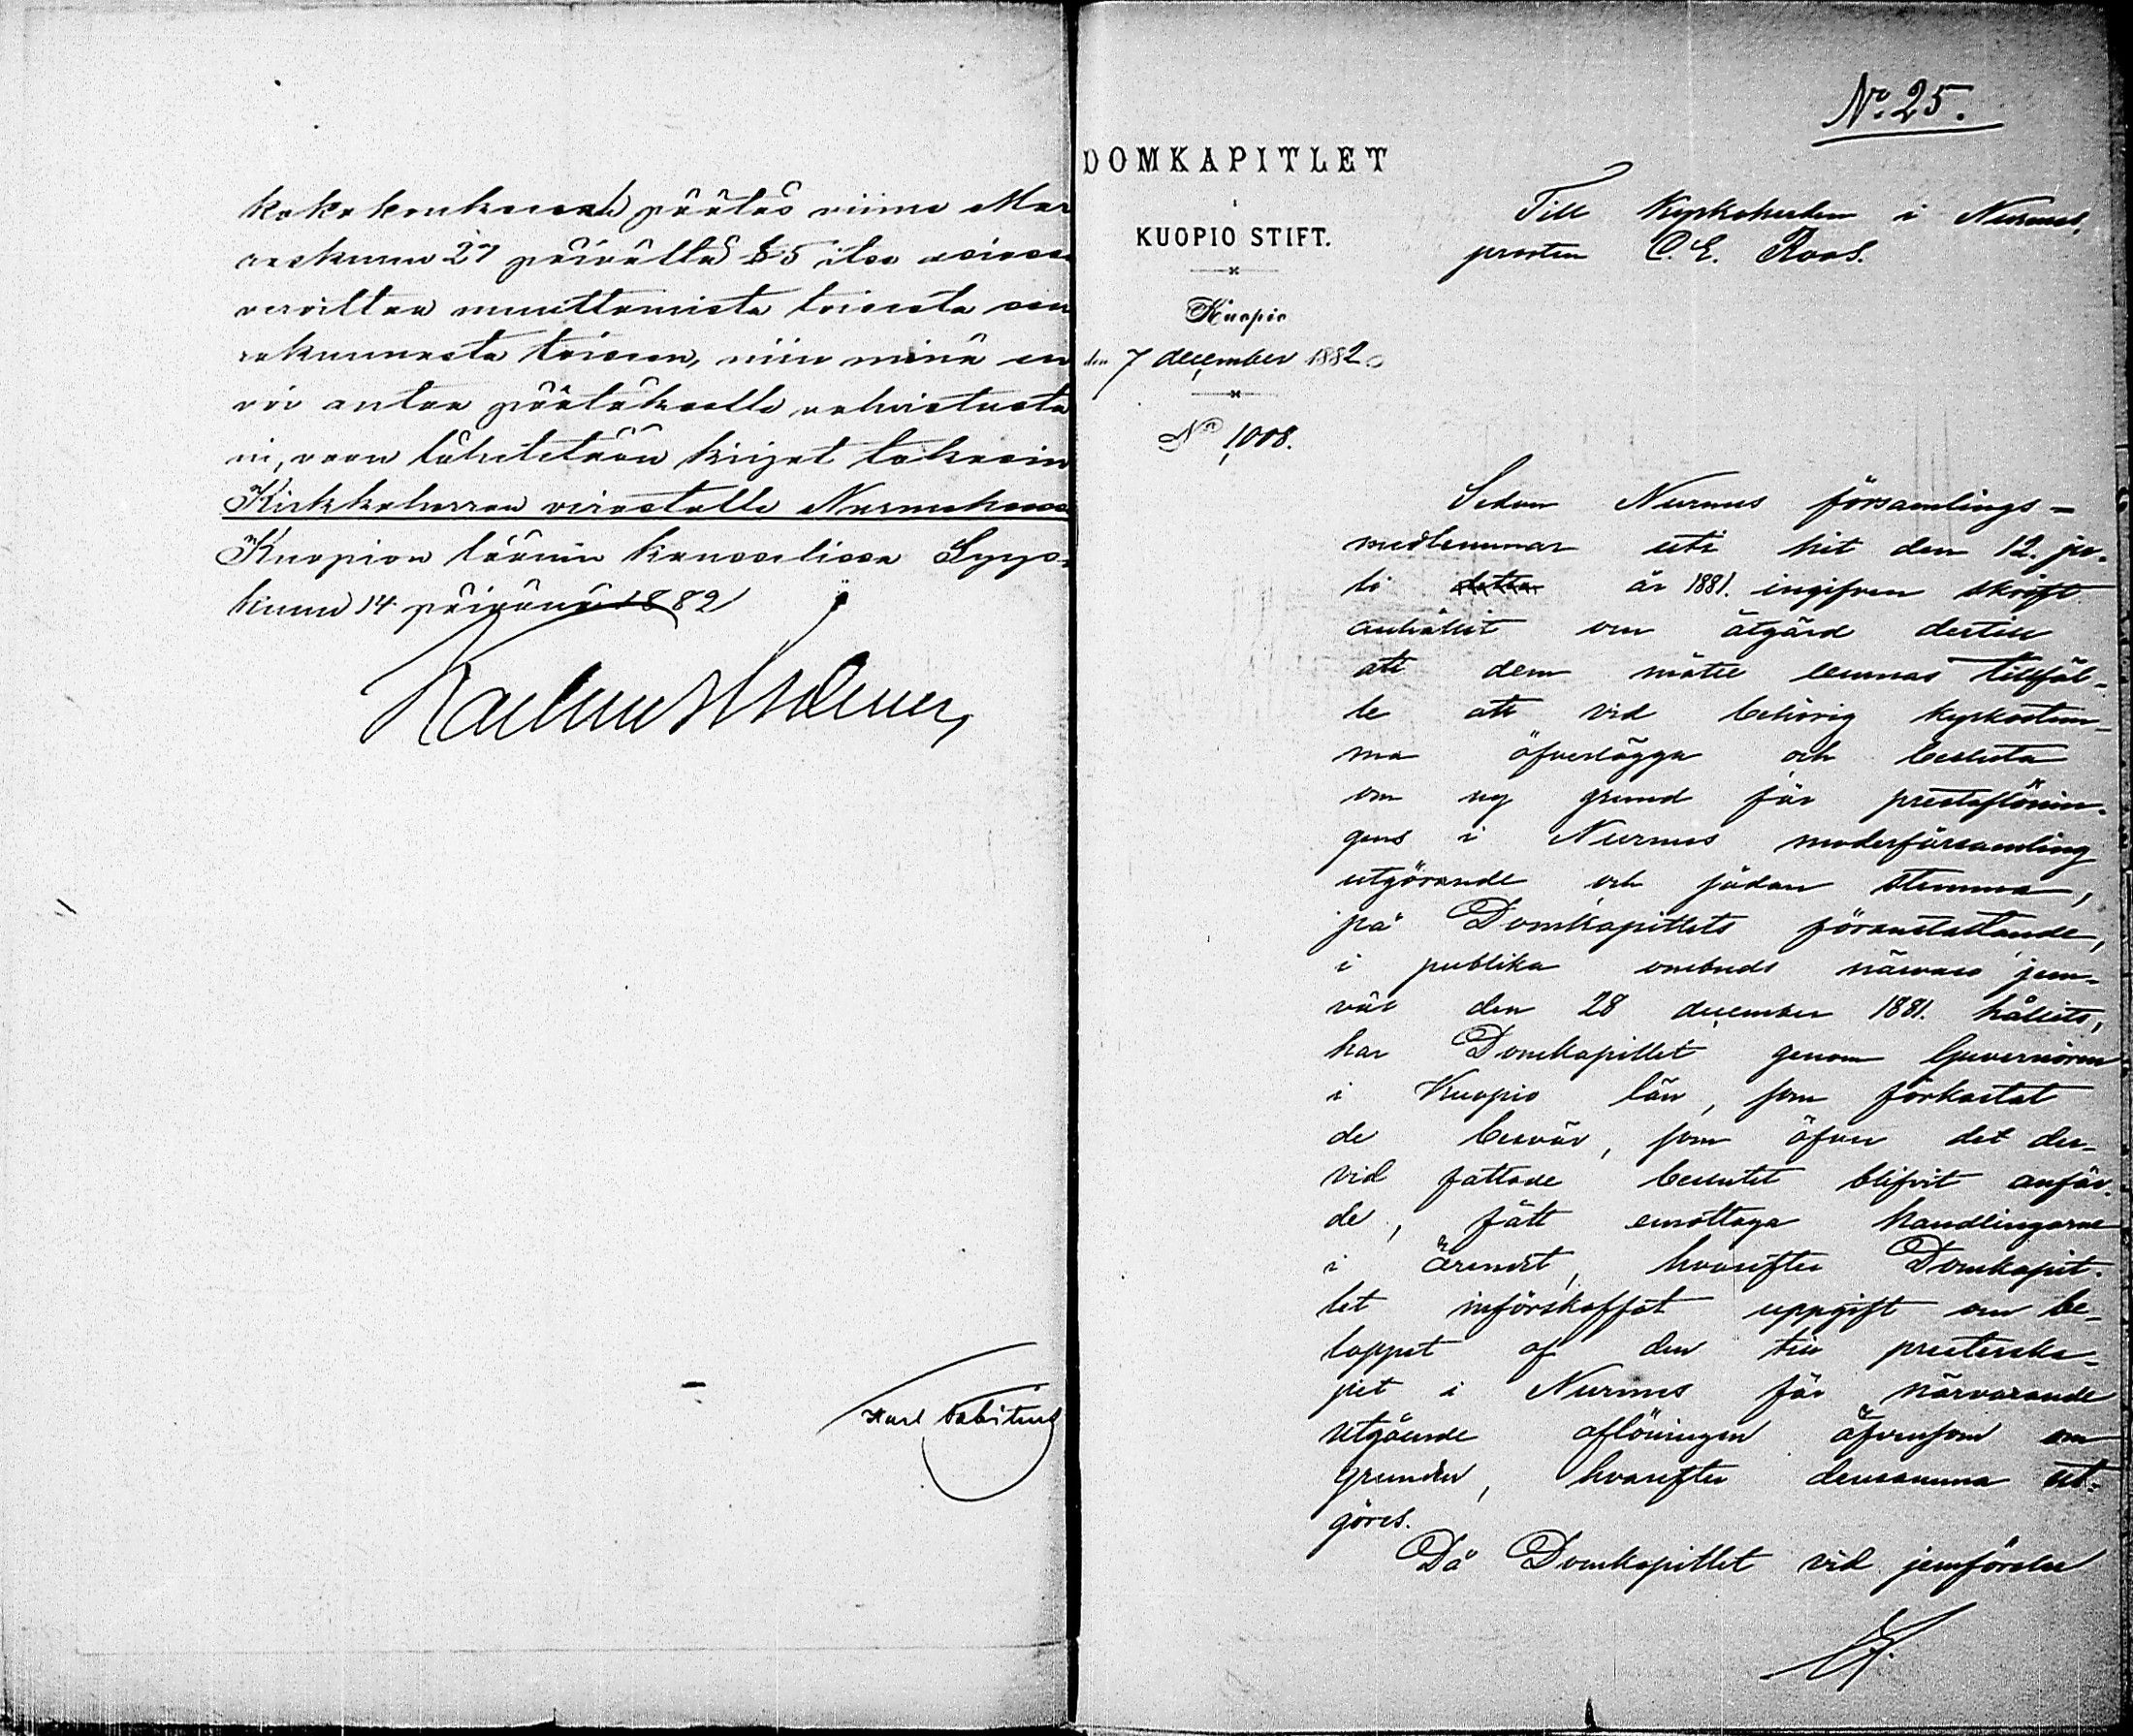 kokokouksessa päätös viime Mar
raskuun 27 päivältä § 5 itse asiassa
muuttamista toisesta seu
rakunnasta toiseen, niin minä en
voi antaa päätökselle vahvistusta
ni, vaan lähetetään kirjat takasin
Kirkkoherran virastolle Nurmeksessa
Kuopion läänin kansliissa Syys
kuun 14 päivänä 1882
Karl
DOMKAPITLET
i
KUOPIO STIFT.
Kuopio
den 7 december 1882.
No 1008.
No 25.
Till Kyrkoherden i Nurmes,
prosten C. E. Roos.
Sedan Nurmes församlings-
medlemmar uti hit den 12. ju-
li detta år 1881. ingifven skrift
anhållit om åtgärd dertill
att dem måtte lemnas tillfäl-
le att vid behörig kyrkostäm-
ma öfverlägga och besluta
om ny grund för prestaflönin-
gens i Nurmes moderförsamling
utgörande och sådan stämma,
på Domkapitlets föranstaltande,
i publika ombuds närvaro jem-
väl den 28 december 1881. hållits,
har Domkapitlet genom Guvernören
i Kuopio län, som förkastat
de besvär, som öfver det der-
vid fattade beslutet blifvit anför-
de, fått emottaga handlingarne
i ärendet, hvarefter Domkapit-
let införskaffat uppgift om be-
loppet af den till presterska-
pet i Nurmes för närvarande
utgående aflöningen äfvensom om
grunden, hvarefter densamma ut-
göres.
Då Domkapitlet vid jemförelse